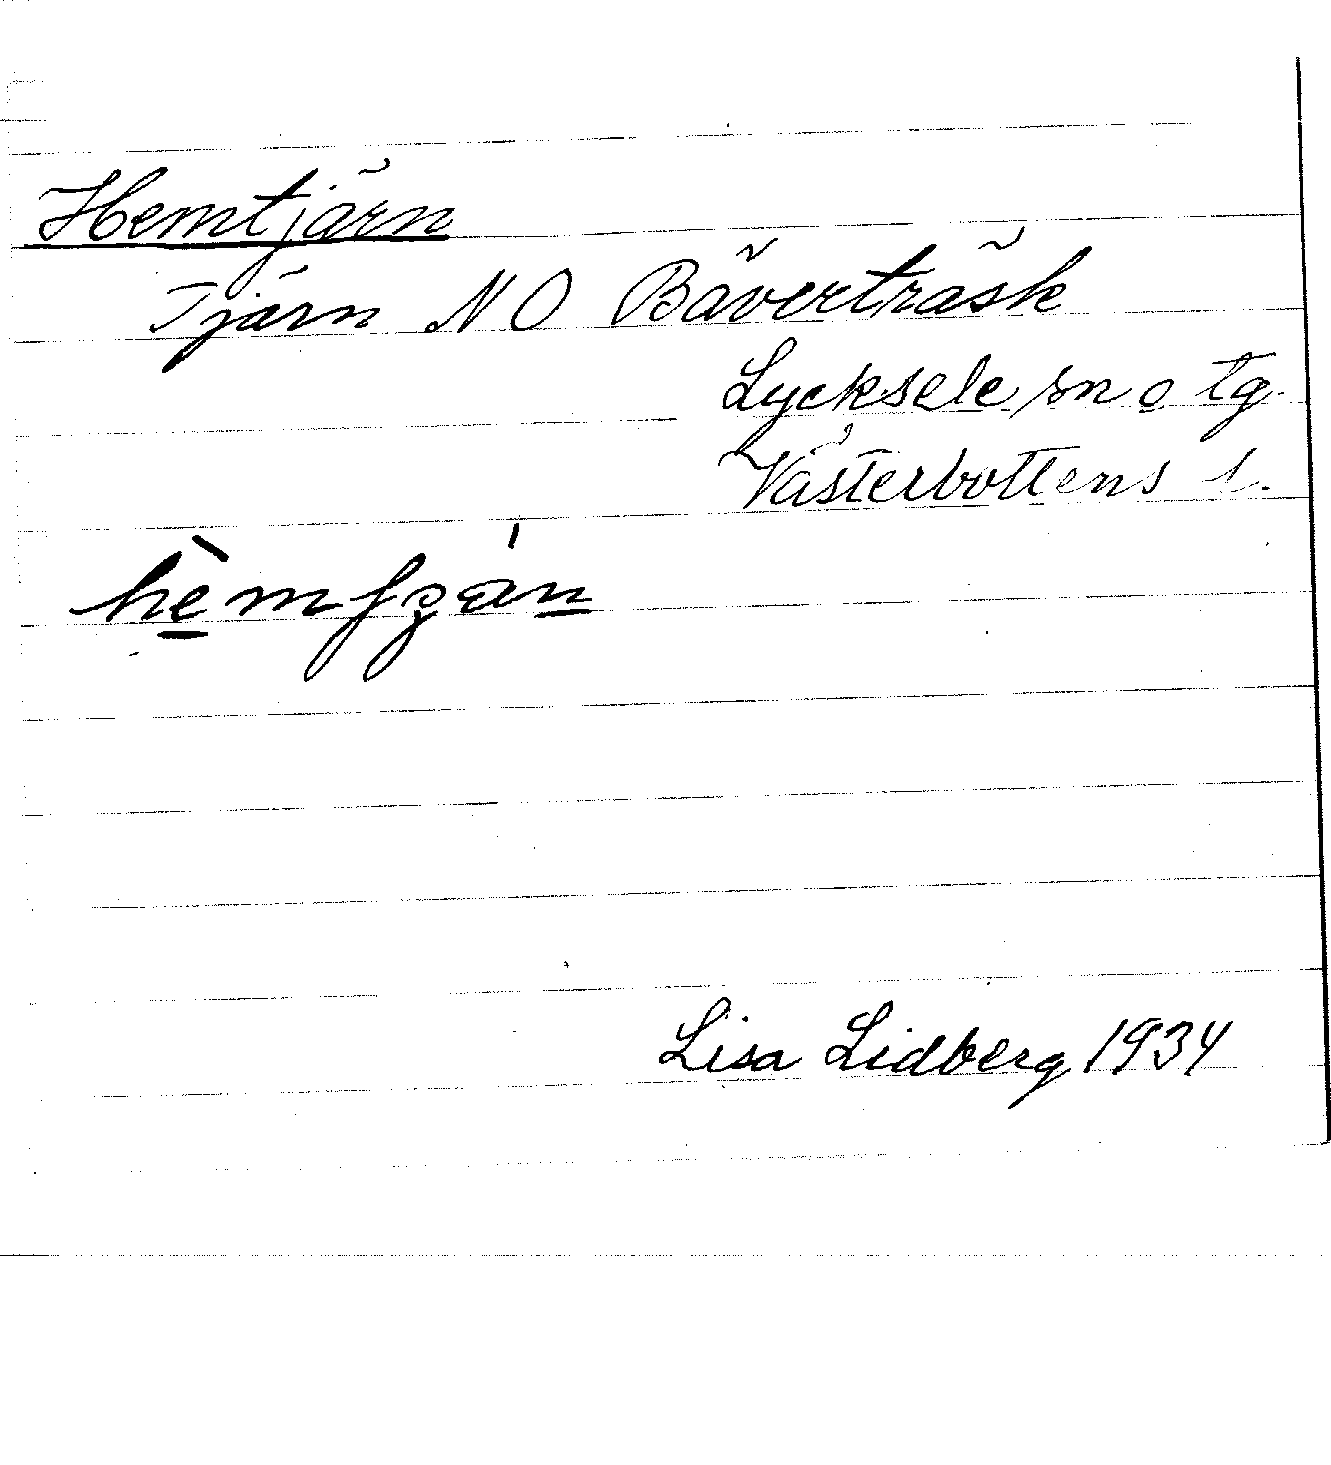 Hemtjärn
Tjärn NO Bäverträsk
Lycksele sn o tg.
Västerbottens l.
Lisa Lidberg 1934